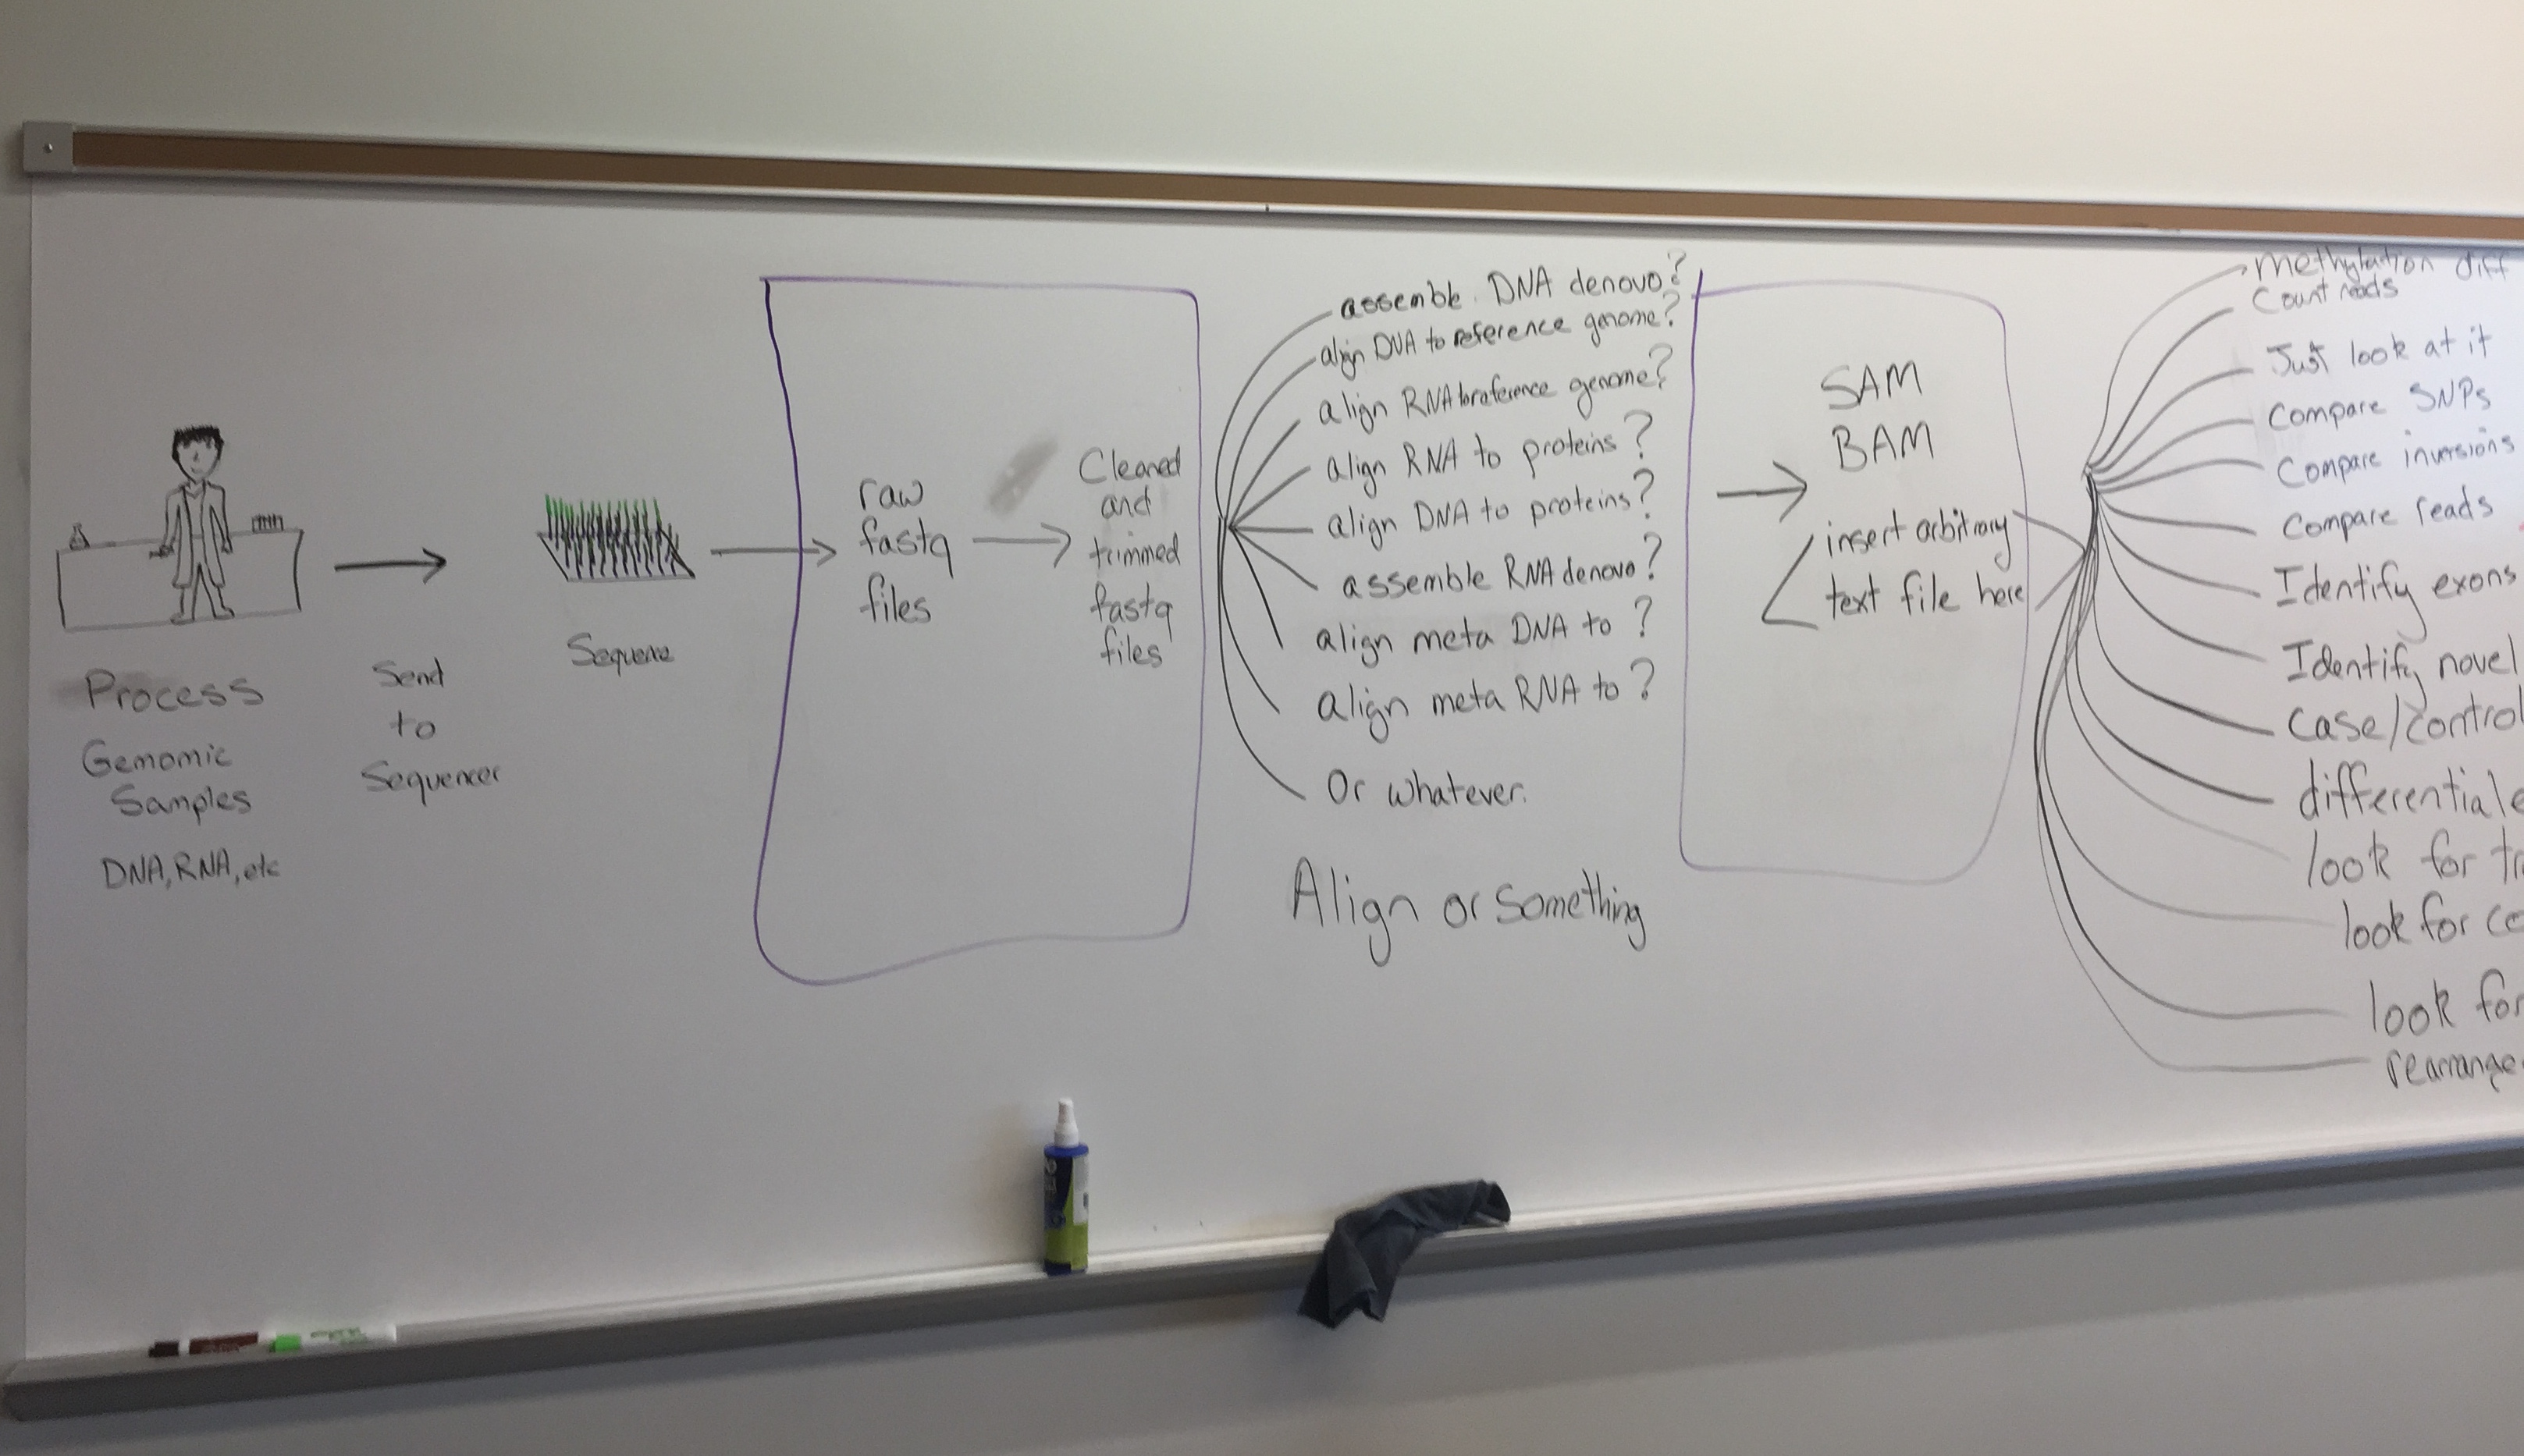 Process
Genomic
Samples
DNA, RNA, etc
Send
to
Sequencer
Sequence
raw
fastq
files
Cleaned
and
trimmed
fastq
files
assemble DNA denovo?
align DNA to reference genome?
align RNA to reference genome?
align RNA to proteins?
align DNA to proteins?
assemble RNA denovo?
align meta DNA to ?
align meta RNA to ?
Or whatever.
Align or something
SAM
BAM
insert arbitrary
text file here
methylation diff
Count reads
Just look at it
Compare SNPs
Compare inversions
Compare reads
Identify exons
Identify novel
Case/control
differential e
look for tr
look for co
look for
rearrange